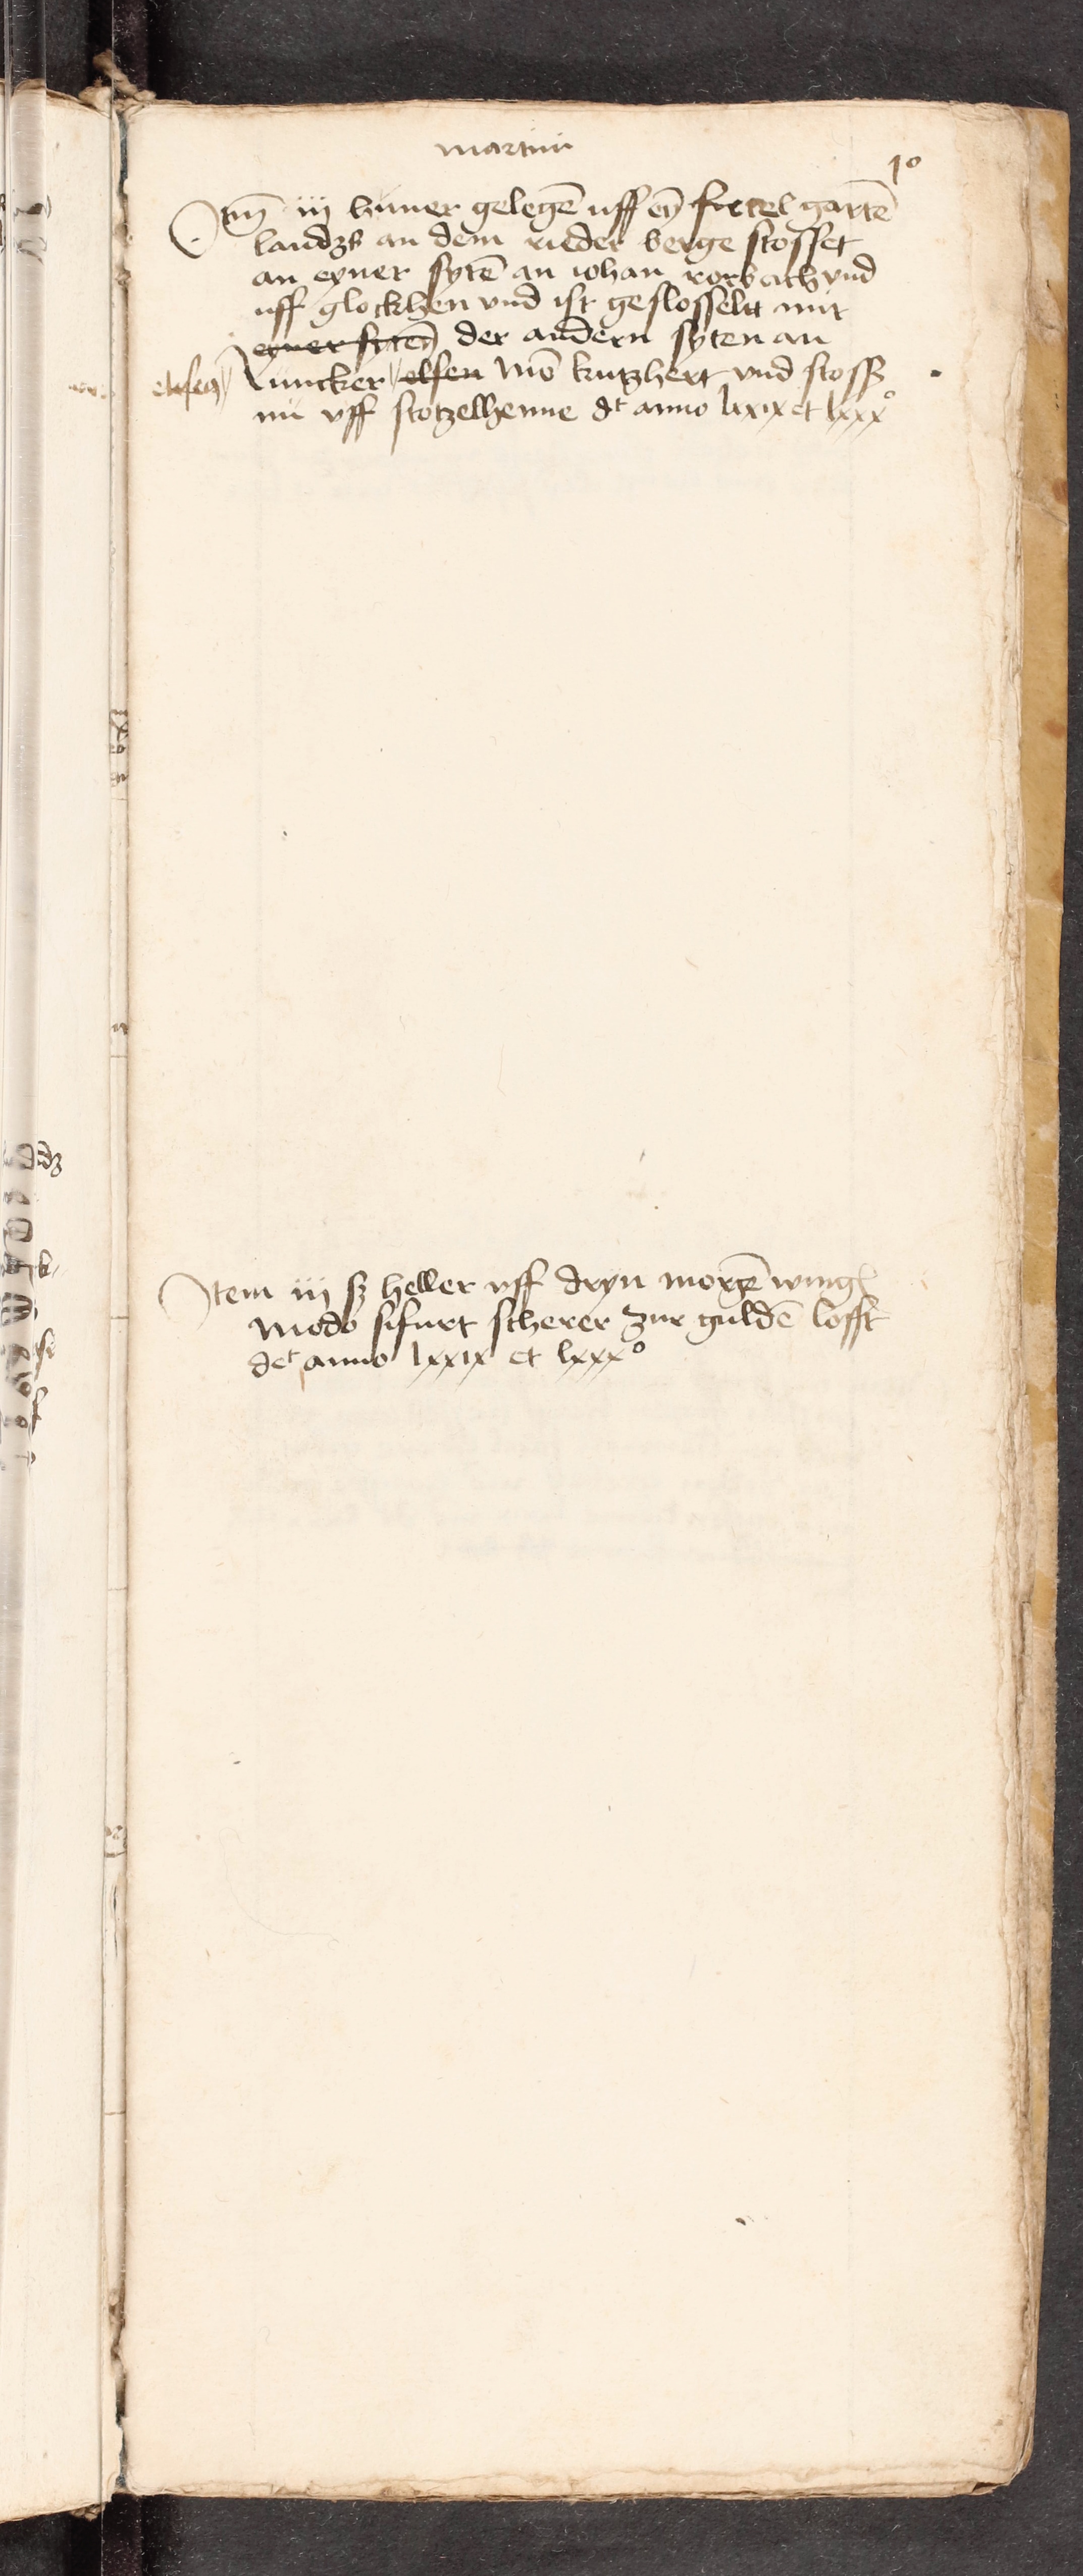 martini
1o
Itm̄ iij huner gelegē uff eȳ firtel gartē
landzß an dem rieder berge stosset
an eyner sytē an iohan rorbach vnd
uff glockhen vnd ist geslosselt mit
eyner sytēn der andern syten an
elsen Juncker elsen mō kutzhert vnd stoss
nū vff stotzelhenne dt anno lxxix et lxxxo
Item iij ß heller vff dryn morgē wing
modo sifurt scherer zur guldē lofft
det anno lxxix et lxxxo